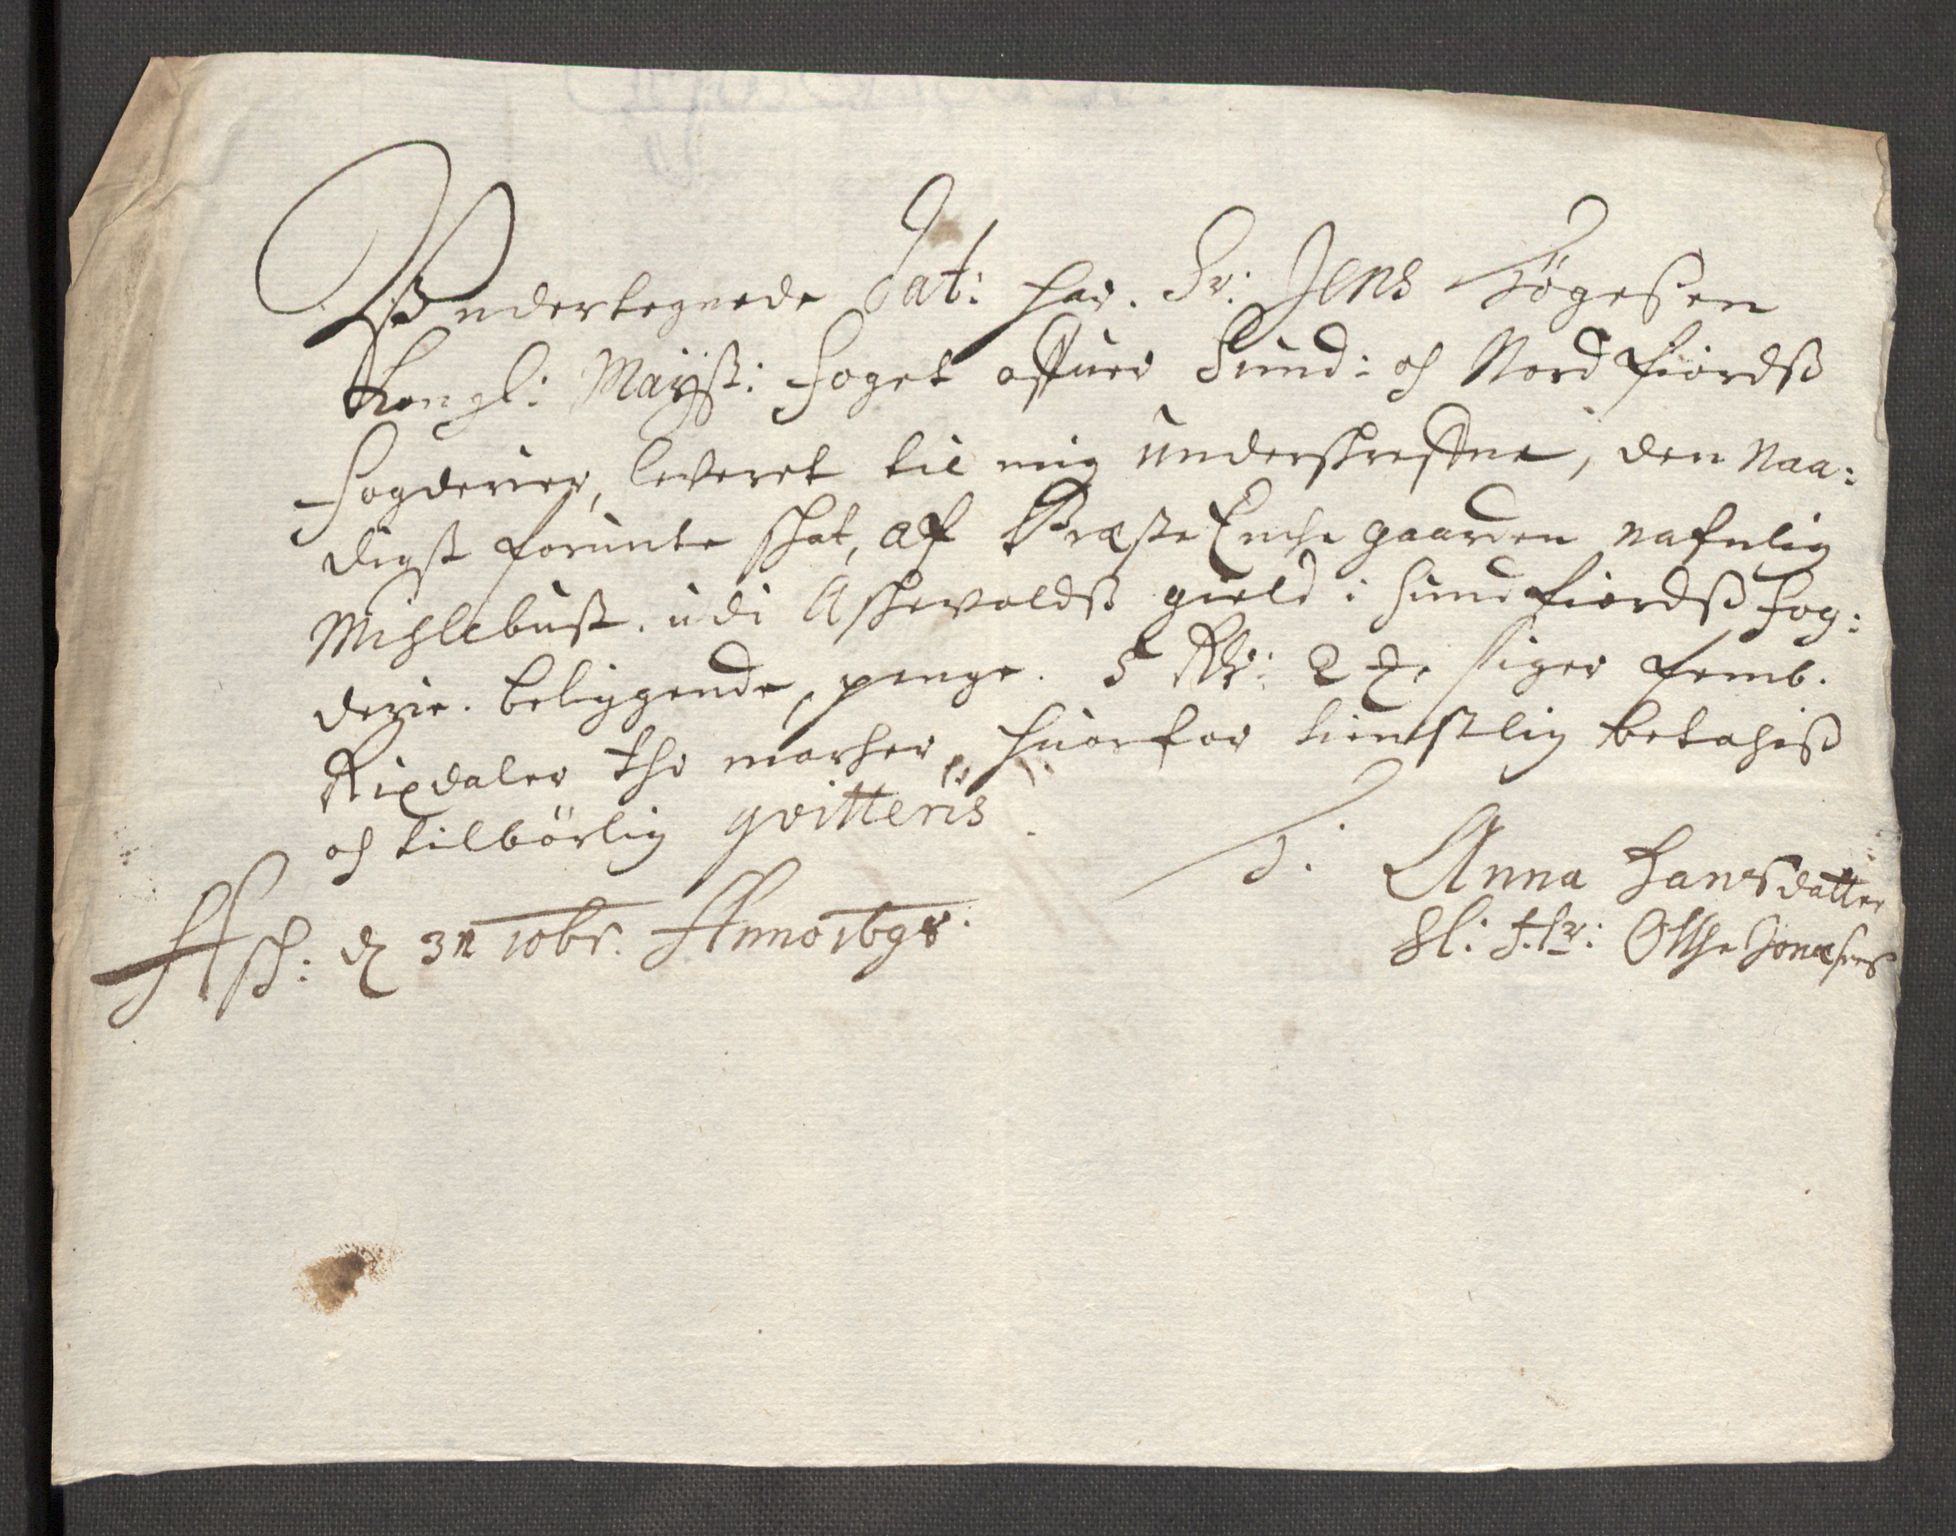 Undertegnede Dat: har. Sr: Jens Bøgeßen
Kongl: Mayßt: foget offuer Sund: och Nordfiordß
fogderier, leveret til mig underskrefne, den Naa:
digst forunte skat, af Præste Enche gaarden nafnlig
Mihlebust. udi Aschevoldß gield i Sundfiordß fog:
derie. beliggende, penge. 5 Rdr: 2 mk: siger femb.
Rixdaler tho marcher, huorfor tienstlig betachiß
och tilbörlig qvitteris.
Asch: d 31 10br. Anno 1698.
Anna Hansdatter
Sl: Hr: Otthe Jonaßens